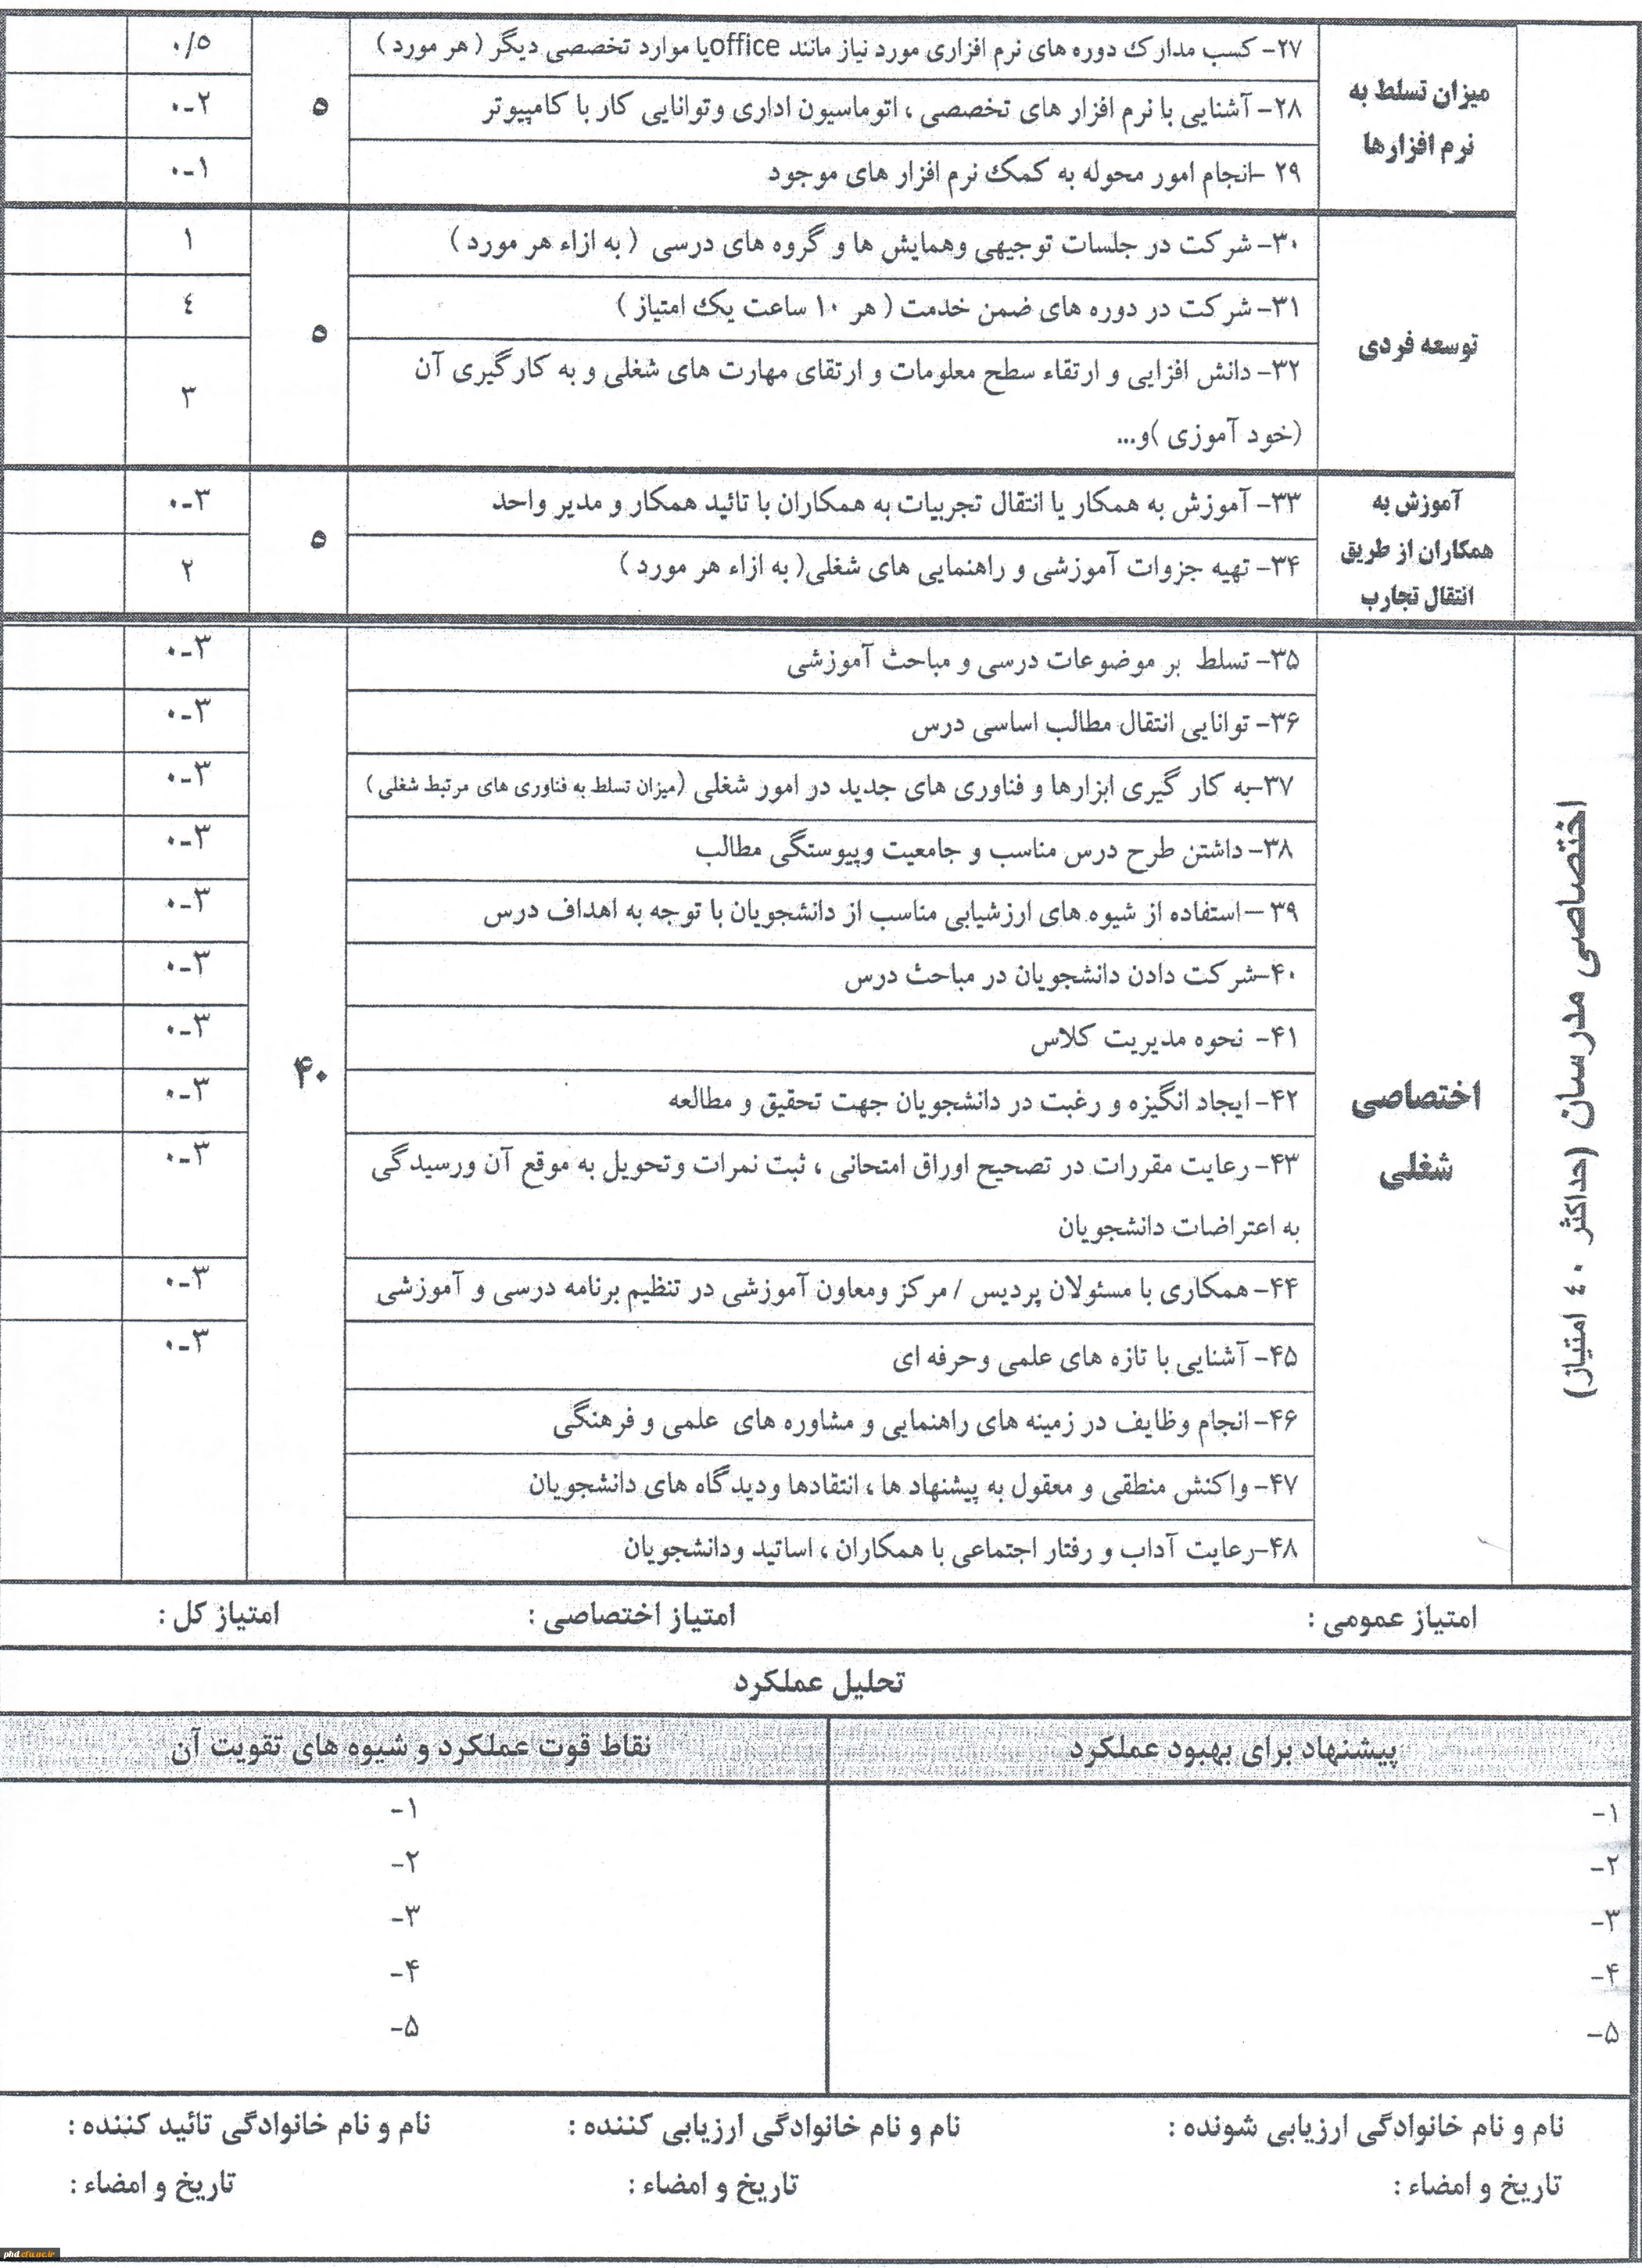 میزان تسلط به
نرم افزارها
۲۷- کسب مدارک دوره های نرم افزاری مورد نیاز مانند officeیا موارد تخصصی دیگر ( هر مورد )
۵
۰/۵
۲۸- آشنایی با نرم افزار های تخصصی ، اتوماسیون اداری وتوانایی کار با کامپیوتر
۰-۲
۲۹ -انجام امور محوله به کمک نرم افزار های موجود
۰-۱
توسعه فردی
۳۰- شرکت در جلسات توجیهی وهمایش ها و گروه های درسی ( به ازاء هر مورد )
۵
۱
۳۱- شرکت در دوره های ضمن خدمت ( هر ۱۰ ساعت یک امتیاز )
٤
۳۲- دانش افزایی و ارتقاء سطح معلومات و ارتقای مهارت های شغلی و به کارگیری آن
(خود آموزی )و...
۳
آموزش به
همکاران از طریق
انتقال تجارب
۳۳- آموزش به همکار یا انتقال تجربیات به همکاران با تائید همکار و مدیر واحد
۵
۰-۳
۳۴- تهیه جزوات آموزشی و راهنمایی های شغلی( به ازاء هر مورد )
۲
اختصاصی مدرسان (حداکثر ٤٠ امتیاز)
اختصاصی
شغلی
۴۰
۳۵- تسلط بر موضوعات درسی و مباحث آموزشی
۰-۳
۳۶- توانایی انتقال مطالب اساسی درس
۰-۳
۳۷-به کار گیری ابزارها و فناوری های جدید در امور شغلی (میزان تسلط به فناوری های مرتبط شغلی )
۰-۳
۳۸- داشتن طرح درس مناسب و جامعیت وپیوستگی مطالب
۰-۳
۳۹ –استفاده از شیوه های ارزشیابی مناسب از دانشجویان با توجه به اهداف درس
۰-۳
۴۰-شرکت دادن دانشجویان در مباحث درس
۰-۳
۴۱- نحوه مدیریت کلاس
۰-۳
۴۲- ایجاد انگیزه و رغبت در دانشجویان جهت تحقیق و مطالعه
۰-۳
۴۳- رعایت مقررات در تصحیح اوراق امتحانی ، ثبت نمرات وتحویل به موقع آن ورسیدگی
به اعتراضات دانشجویان
۰-۳
۴۴- همکاری با مسئولان پردیس / مرکز ومعاون آموزشی در تنظیم برنامه درسی و آموزشی
۰-۳
۴۵- آشنایی با تازه های علمی وحرفه ای
۰-۳
۴۶- انجام وظایف در زمینه های راهنمایی و مشاوره های علمی و فرهنگی
۴۷- واکنش منطقی و معقول به پیشنهاد ها ، انتقادها ودیدگاه های دانشجویان
۴۸-رعایت آداب و رفتار اجتماعی با همکاران ، اساتید ودانشجویان
امتیاز عمومی : امتیاز اختصاصی : امتیاز کل :
تحلیل عملکرد
پیشنهاد برای بهبود عملکرد
نقاط قوت عملکرد و شیوه های تقویت آن
۱-
۱-
۲-
۲-
۳-
۳-
۴-
۴-
۵-
۵-
نام و نام خانوادگی ارزیابی شونده : نام و نام خانوادگی ارزیابی کننده : نام و نام خانوادگی تائید کننده :
تاریخ و امضاء : تاریخ و امضاء : تاریخ و امضاء :
phd.cfu.ac.ir